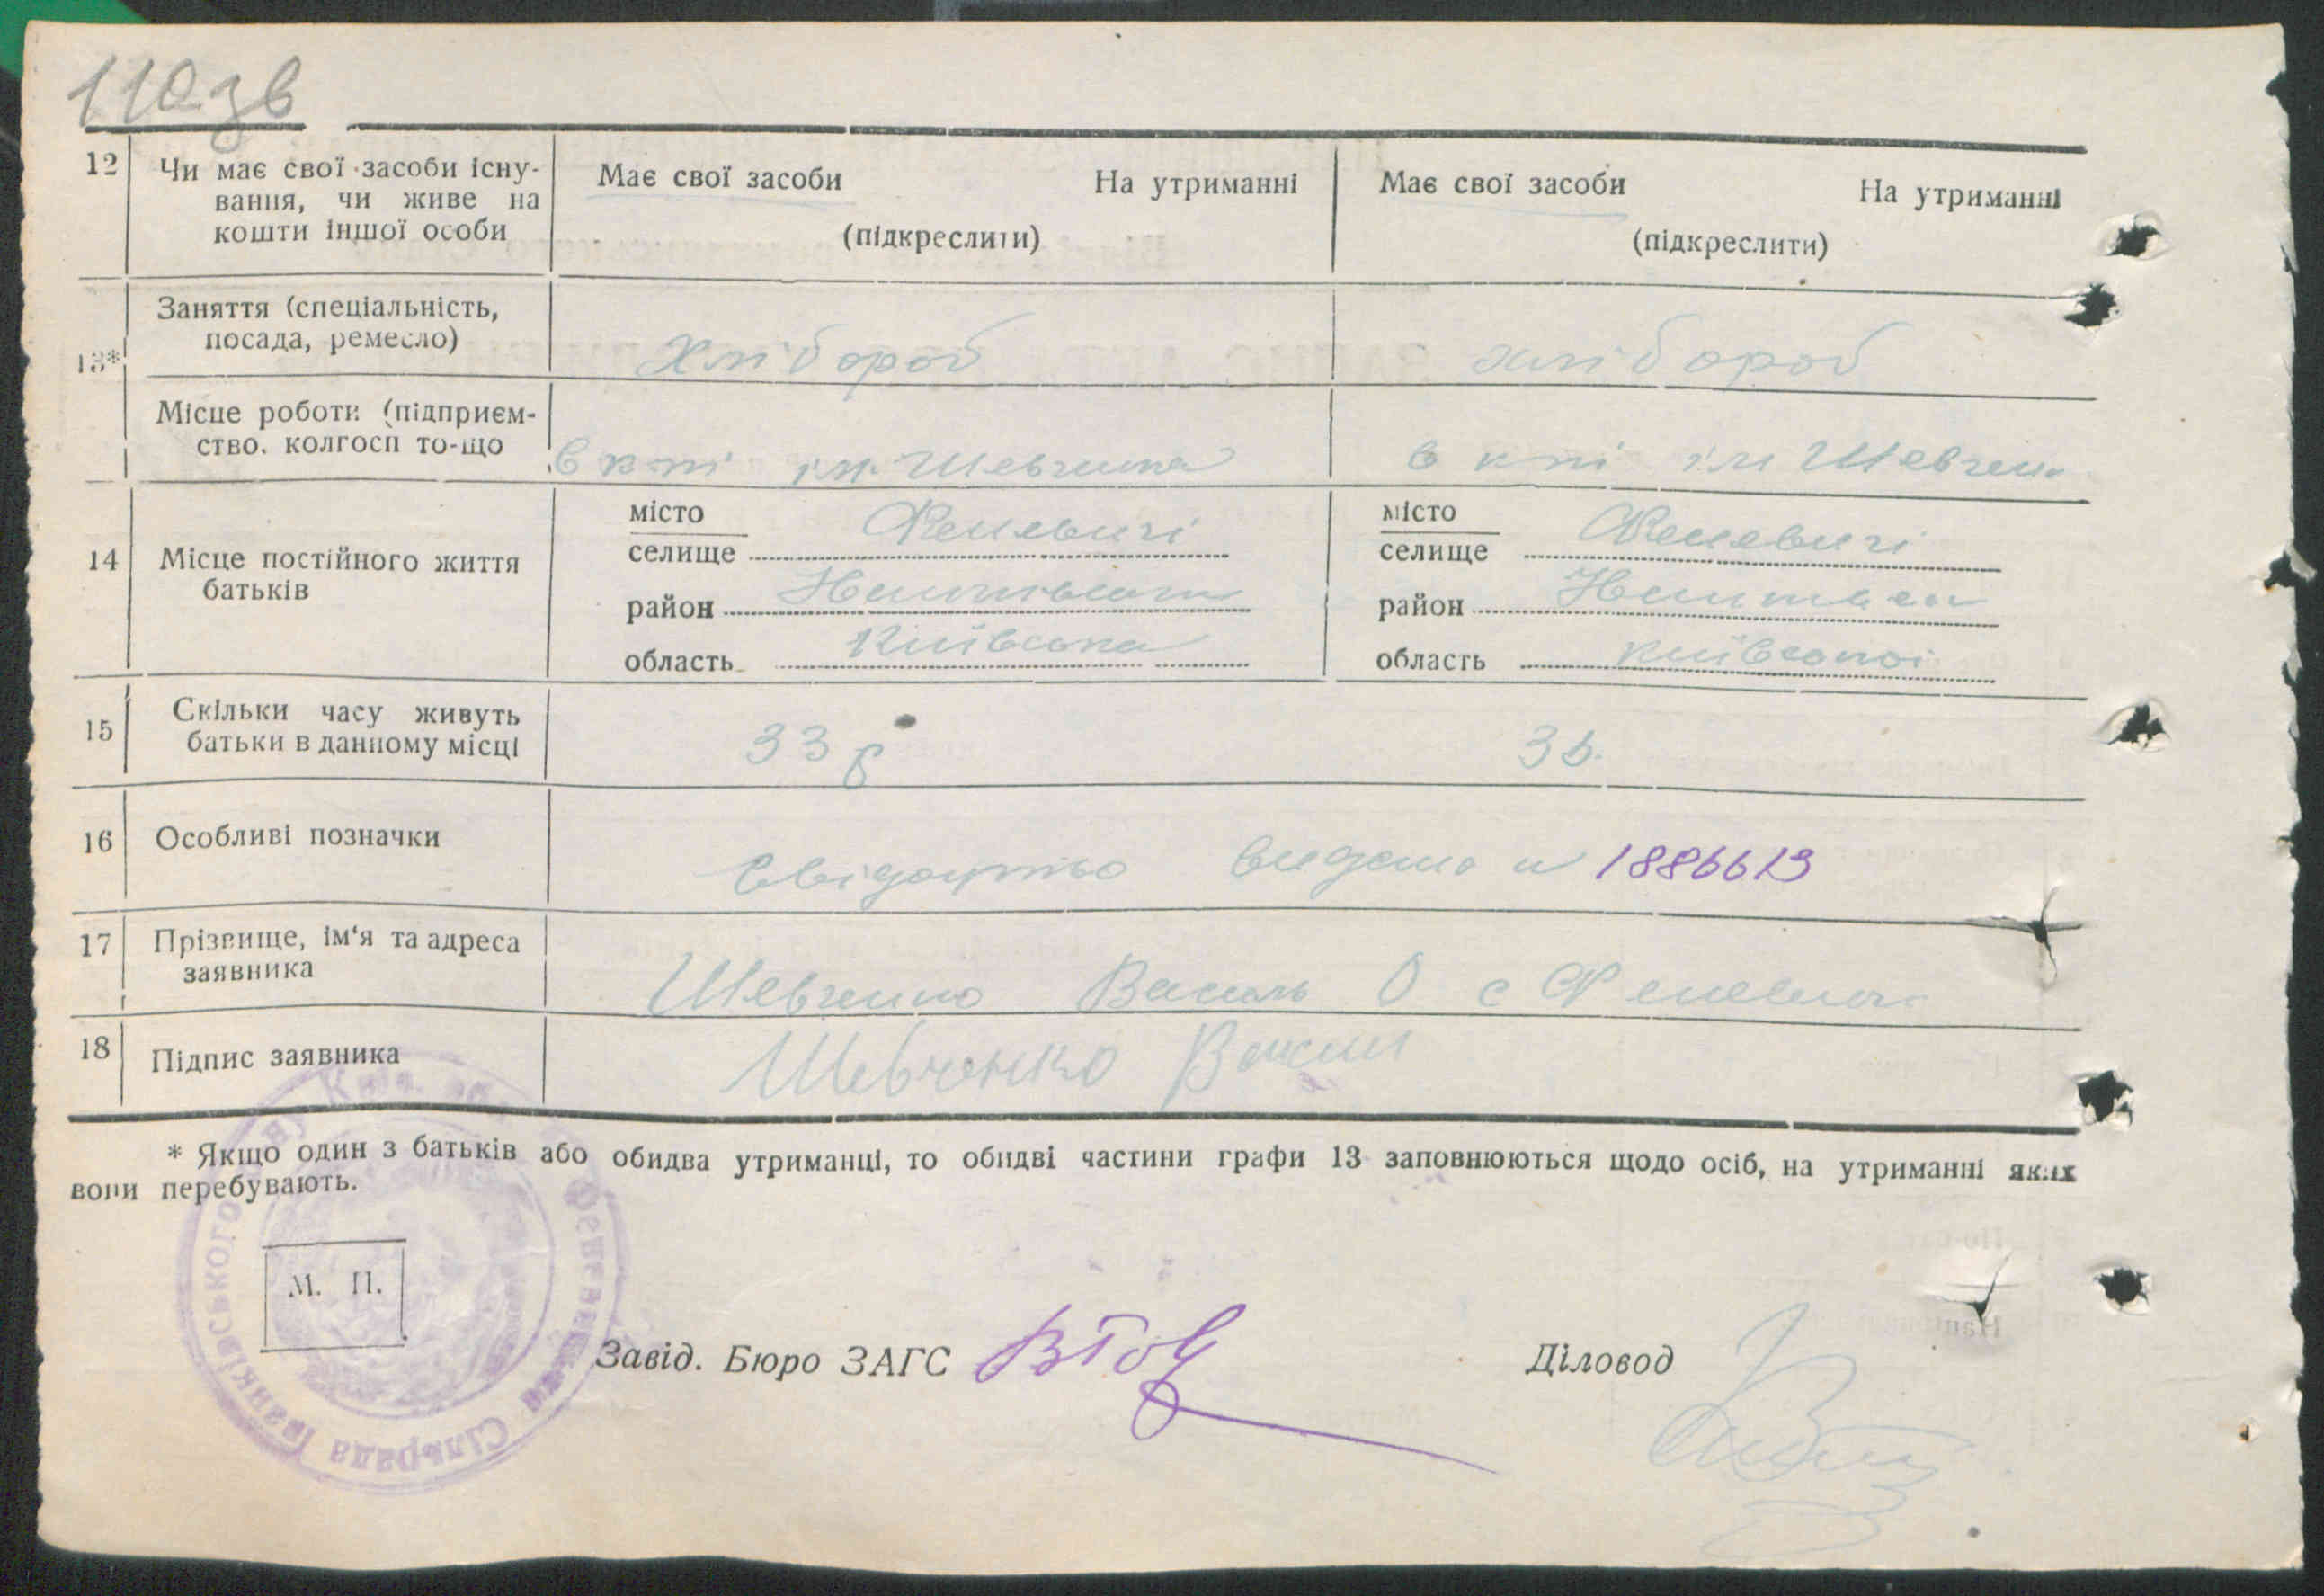 110зв
12 Чи має свої засоби існу- Має свої засоби На утриманні Має свої засоби На утриманні
вання, чи живе на
кошти іншої особи (підкреслити) (підкреслити)
Заняття (спеціальність,
посада, ремесло) Хлібороб хлібороб
13*
Місце роботи (підприєм-
ство. колгосп то-що в к-пі ім. Шевченка в к-пі ім Шевченк
місто Феневичі місто Феневичі
14 Місце постійного життя селище селище
батьків район район
область Київська область Київської
15 Скільки часу живуть 33 р
батьки в данному місці
16 Особливі позначки Свідоцтво видано № 1886613
17 Прізвище, ім‘я та адреса
заявника Шевченко Василь О с Феневичі
18 Підпис заявника Шевченко Васил
* Якщо один з батьків або обидва утриманці, то обидві частини графи 13 заповнюються щодо осіб, на утриманні яких
вони перебувають.
М. П.
Завід. Бюро ЗАГС Діловод
Сільрада Іванківського